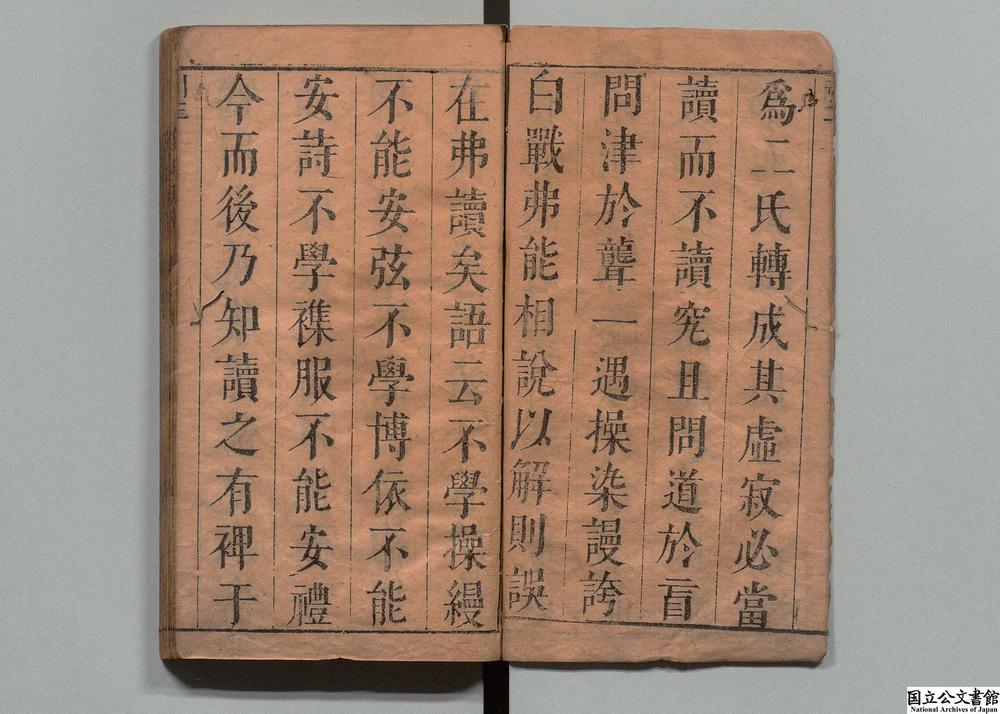 爲二氏轉成其虛寂必當
讀而不讀究且問道於盲
問津於聾一遇操染謾誇
白戰弗能相說以解則誤
在弗讀矣語云不學操縵
不能安弦不學博依不能
安詩不學襍服不能安禮
今而後乃知讀之有裨于
国立公文書館
National Archives of Japan